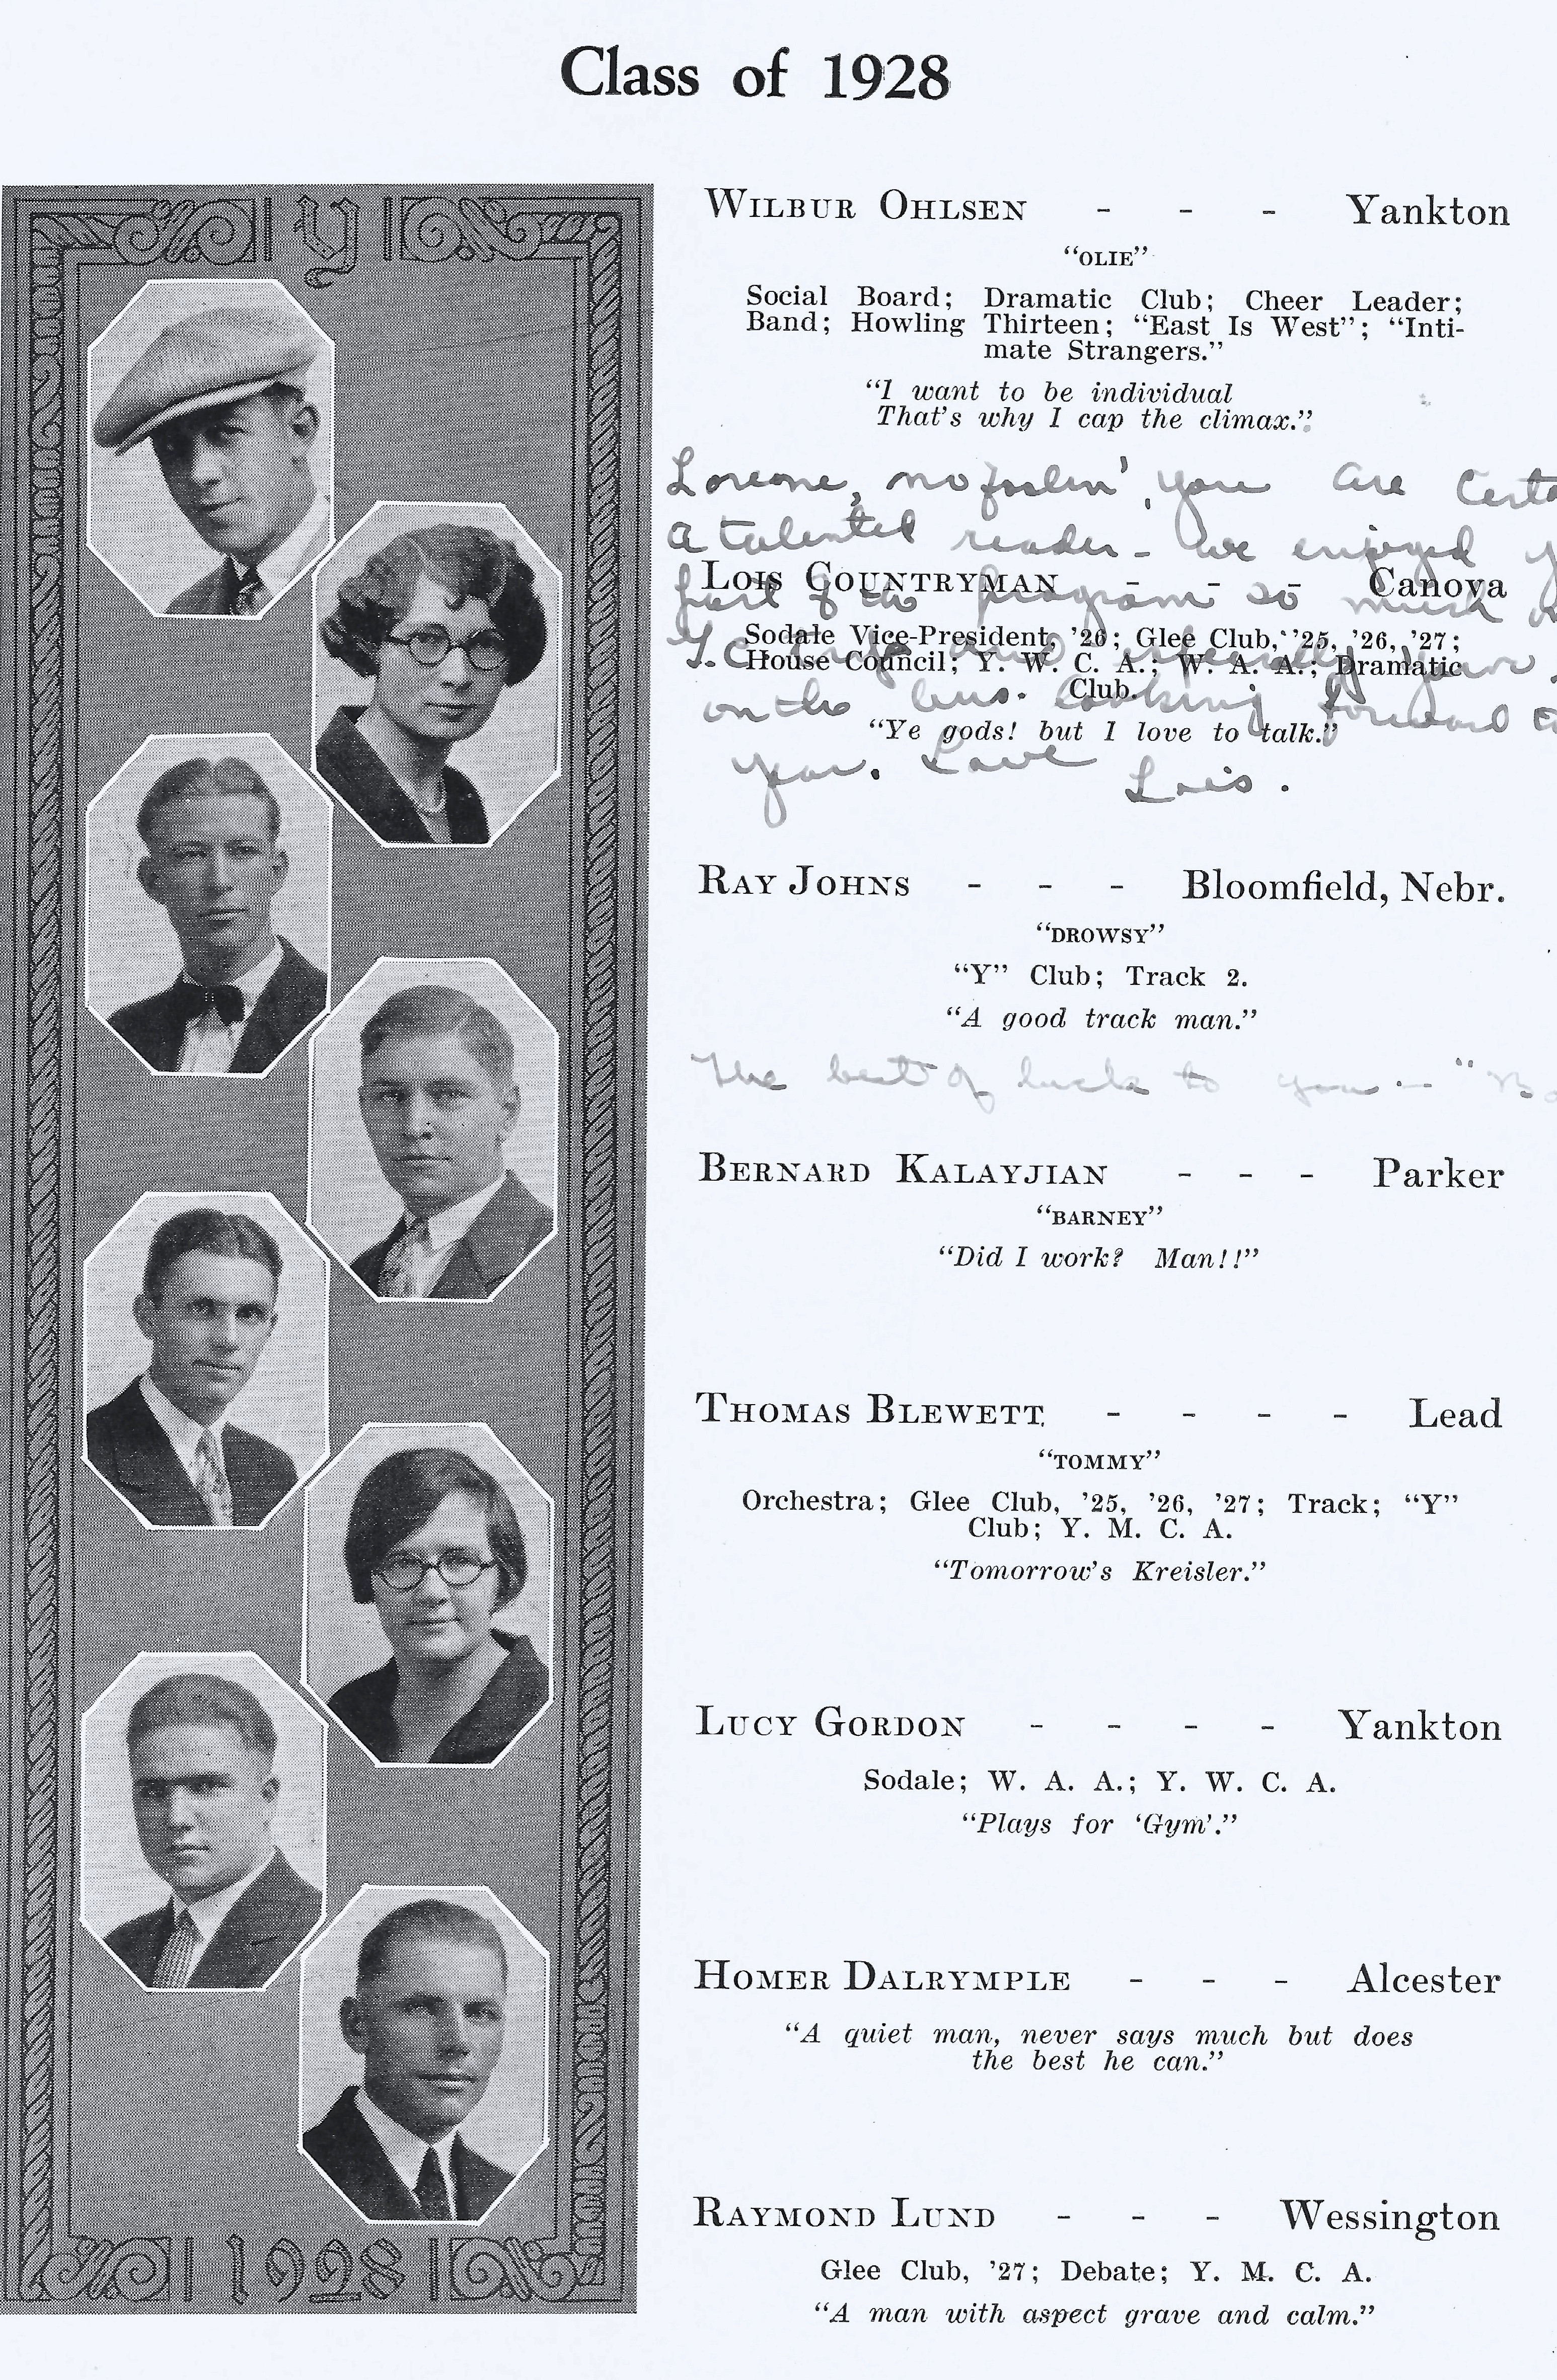 Class of 1928
Y
WILBUR OHLSEN - - - Yankton
"OLIE"
Social Board; Dramatic Club; Cheer Leader;
Band; Howling Thirteen; "East Is West"; "Inti-
mate Strangers."
"I want to be individual
That's why I cap the climax."
Loreone, no foolin', you are
a talented reader - we enjoyed
LOIS COUNTRYMAN - - - Canova
part of the program so much
Sodale Vice-President, '26; Glee Club, '25, '26, '27;
House Council; Y. W. C. A.; W. A. A.; Dramatic
Club.
on the bus. Looking forward
"Ye gods! but I love to talk."
year. Love
Lois.
RAY JOHNS - - - Bloomfield, Nebr.
"DROWSY"
"Y" Club; Track 2.
"A good track man."
The best of luck to you — "
BERNARD KALAYJIAN - - - Parker
"BARNEY"
"Did I work? Man!!"
THOMAS BLEWETT - - - - Lead
"TOMMY"
Orchestra; Glee Club, '25, '26, '27; Track; "Y"
Club; Y. M. C. A.
"Tomorrow's Kreisler."
LUCY GORDON - - - - Yankton
Sodale; W. A. A.; Y. W. C. A.
"Plays for 'Gym'."
HOMER DALRYMPLE - - - Alcester
"A quiet man, never says much but does
the best he can."
RAYMOND LUND - - - Wessington
Glee Club, '27; Debate; Y. M. C. A.
"A man with aspect grave and calm."
1928